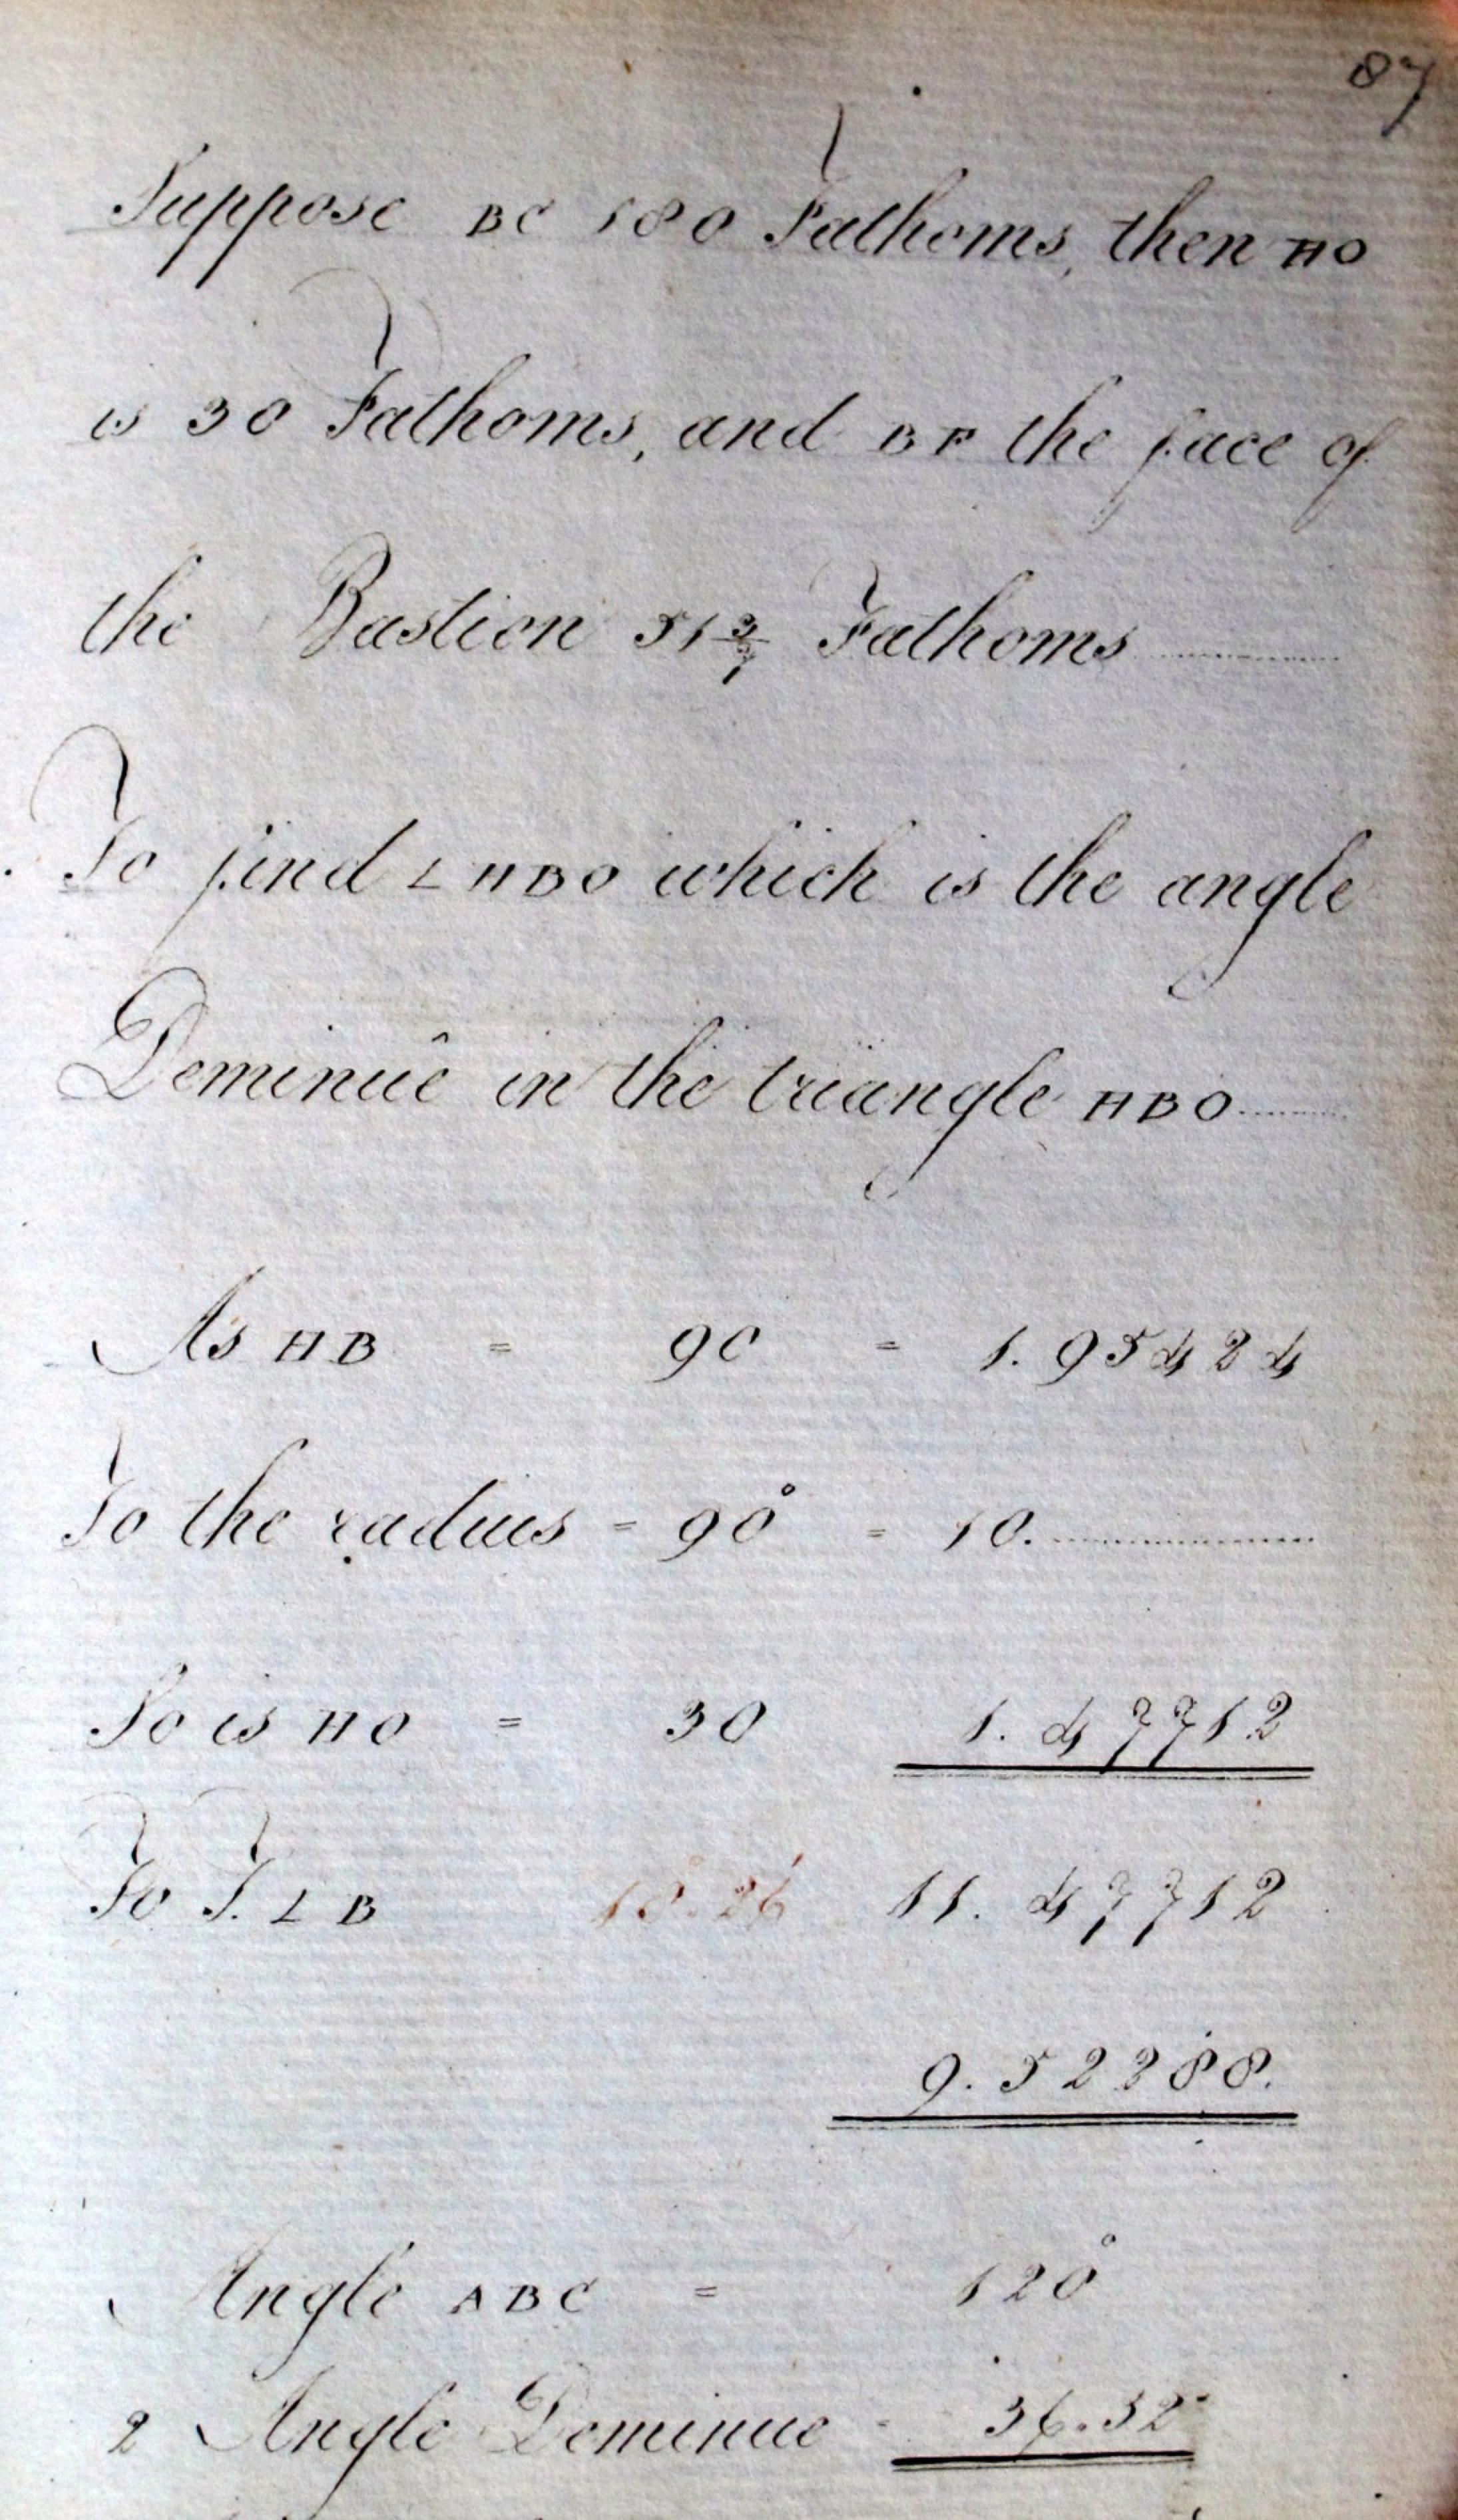 87
Suppose BC 180 Fathoms, then HO
is 30 Fathoms, and BF the face of
the Bastion 51 3/7 Fathoms
To find ∠ HBO which is the angle
Deminuê in the triangle HBO
As HB = 90 = 1.95424
To the radius = 90° = 10.
So is HO = 30 1.47712
To T. ∠ B 18°.26' 11.47712
9.52288.
Angle ABC = 120°
2 Angle Deminue - 36.52